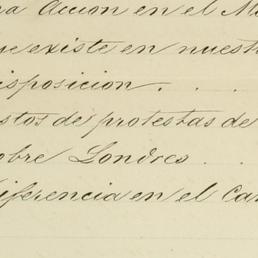 na Accion en el M
ue existe en nuest
isposicion . . .
stos de protestas de
obre Londres . . .
iferencia en el Ca